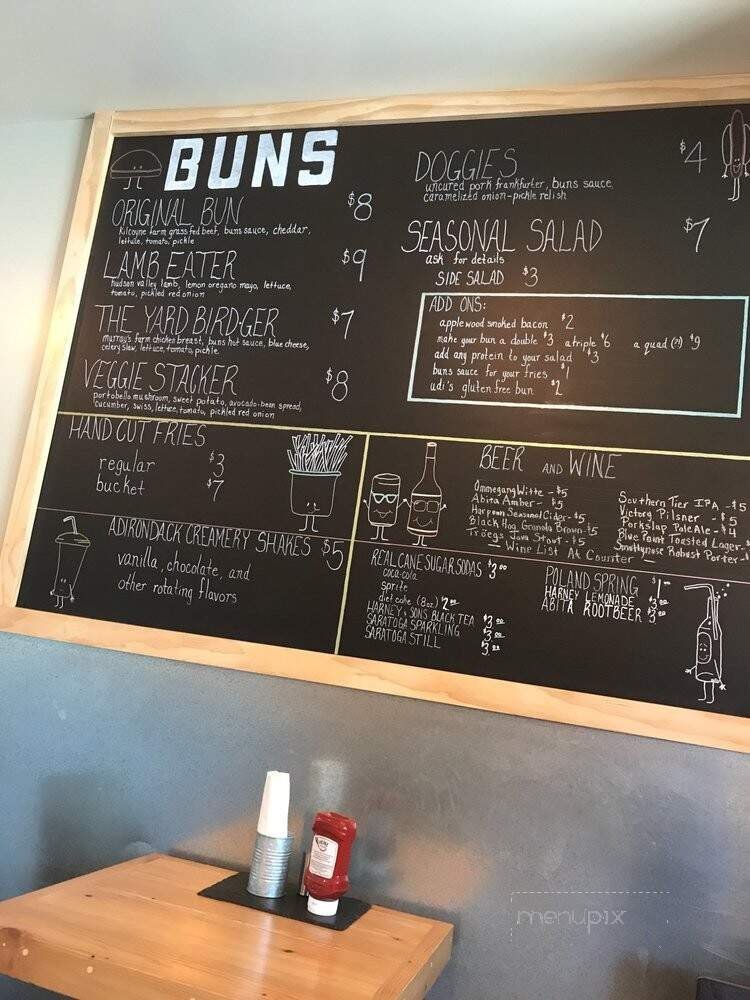 BUNS
ORIGINAL BUN $8
Kilcoyne farm grass fed beef, buns sauce, cheddar,
lettuce, tomato, pickle
LAMB EATER $9
hudson valley lamb, lemon oregano mayo, lettuce,
tomato, pickled red onion
THE YARD BIRDGER $7
murray's farm chicken breast, buns hot sauce, blue cheese,
celery slaw, lettuce, tomato, pickle.
VEGGIE STACKER $8
portobello mushroom, sweet potato, avocado-bean spread,
cucumber, swiss, lettuce, tomato, pickled red onion
DOGGIES $4
uncured pork frankfurter, buns sauce,
caramelized onion-pickle relish
SEASONAL SALAD $7
ask for details
SIDE SALAD $3
ADD ONS:
applewood smoked bacon $2
make your bun a double $3 a triple $6 a quad (?!) $9
add any protein to your salad $3
buns sauce for your fries $1
udi's gluten free bun $2
HAND CUT FRIES
regular $3
bucket $7
ADIRONDACK CREAMERY SHAKES $5
vanilla, chocolate, and
other rotating flavors
BEER AND WINE
Ommegang Witte - $5
Abita Amber - $5
Harpoon Seasonal Cider - $5
Black Hog Granola Brown - $5
Tröegs Java Stout - $5
Southern Tier IPA - $5
Victory Pilsner - $5
Porkslap Pale Ale - $4
Blue Point Toasted Lager - $
Smuttynose Robust Porter - $
— Wine List At Counter —
REAL CANE SUGAR SODAS $3.00
coca-cola
sprite
diet coke (8oz) $2.00
HARNEY & SONS BLACK TEA $3.00
SARATOGA SPARKLING $3.00
SARATOGA STILL $3.00
POLAND SPRING $1.00
HARNEY LEMONADE $3.00
ABITA ROOTBEER $3.00
menupix